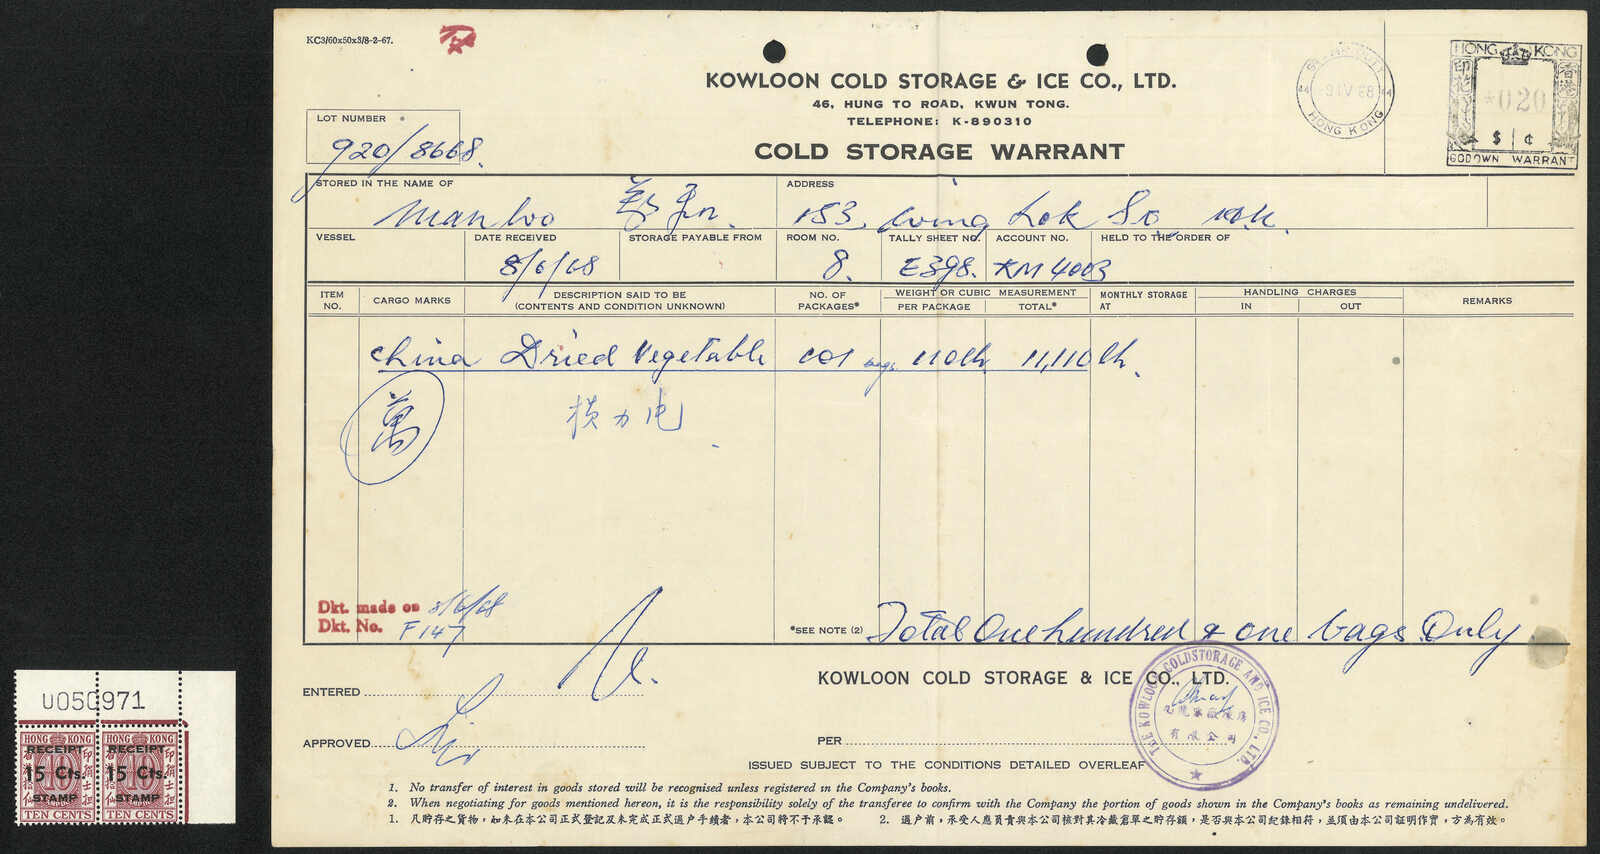 KC3/60x50x3/8-2-67.
KOWLOON COLD STORAGE & ICE CO., LTD.
46, HUNG TO ROAD, KWUN TONG.
TELEPHONE: K-890310
COLD STORAGE WARRANT
HONG KONG
HONG KONG
印花
香港
*020
$ ¢
GODOWN WARRANT
LOT NUMBER
920/8668.
STORED IN THE NAME OF
Man Woo
ADDRESS
153, Wing Lok St., H.K.
VESSEL
DATE RECEIVED
8/6/68
STORAGE PAYABLE FROM
ROOM NO.
8.
TALLY SHEET NO.
E398.
ACCOUNT NO.
KM4003
HELD TO THE ORDER OF
ITEM NO.
CARGO MARKS
DESCRIPTION SAID TO BE
(CONTENTS AND CONDITION UNKNOWN)
NO. OF PACKAGES*
WEIGHT OR CUBIC MEASUREMENT
PER PACKAGE
TOTAL*
MONTHLY STORAGE AT
HANDLING CHARGES
IN
OUT
REMARKS
China Dried Vegetable 101 bags 110lb. 11,110lb.
萬
Dkt. made on 8/6/68
Dkt. No. F147
*SEE NOTE (2)
Total One hundred & one bags Only
KOWLOON COLD STORAGE & ICE CO., LTD.
ENTERED
APPROVED
PER
THE KOWLOON COLDSTORAGE AND ICE CO., LTD.
有限公司
ISSUED SUBJECT TO THE CONDITIONS DETAILED OVERLEAF
1. No transfer of interest in goods stored will be recognised unless registered in the Company's books.
2. When negotiating for goods mentioned hereon, it is the responsibility solely of the transferee to confirm with the Company the portion of goods shown in the Company's books as remaining undelivered.
1. 凡貯存之貨物，如未在本公司正式登記及未完成正式過戶手續者，本公司將不予承認。
2. 過戶前，承受人應負責與本公司核對其冷藏倉單之貯存額，是否與本公司紀錄相符，並須由本公司証明作實，方為有效。
U050971
HONG KONG
RECEIPT
10
15 Cts.
STAMP
TEN CENTS
HONG KONG
RECEIPT
10
15 Cts.
STAMP
TEN CENTS